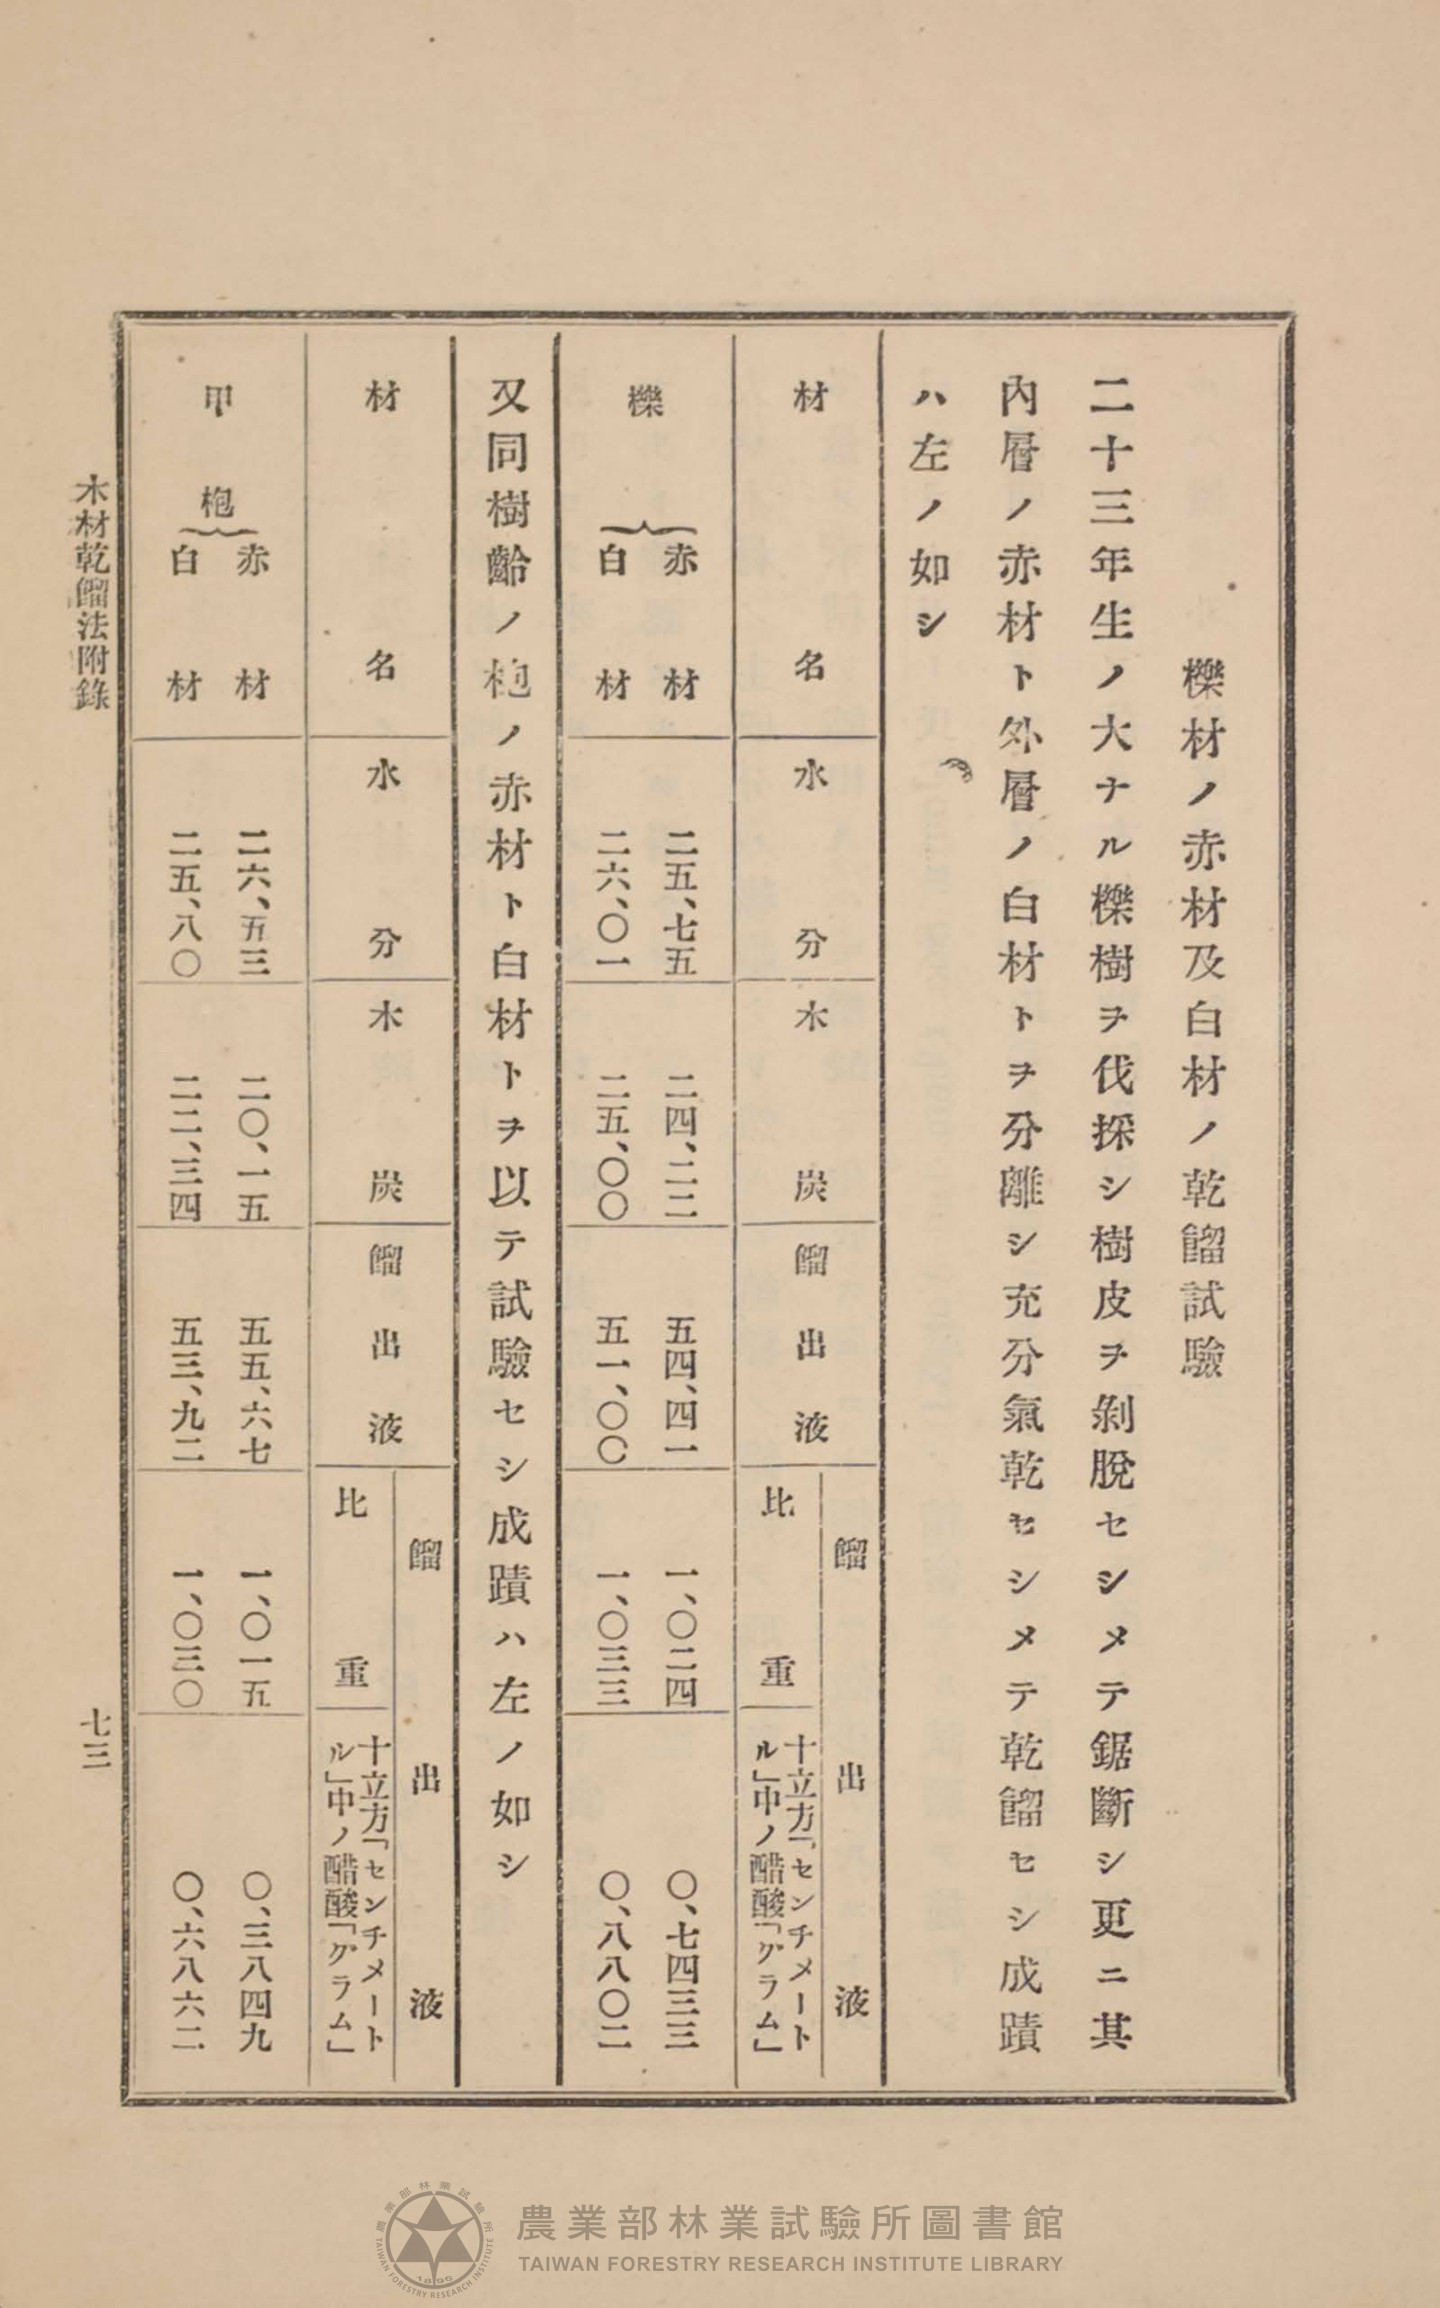 櫟材ノ赤材及白材ノ乾餾試驗
二十三年生ノ大ナル櫟樹ヲ伐採シ樹皮ヲ剝脫セシメテ鋸斷シ更ニ其
內層ノ赤材ト外層ノ白材トヲ分離シ充分氣乾セシメテ乾餾セシ成蹟
ハ左ノ如シ
材名 水分 木炭 餾出液 餾出液
比重 十立方「センチメート
ル」中ノ醋酸「グラム」
櫟 赤材 二五、七五 二四、二二 五四、四一 一、〇二四 〇、七四三三
白材 二六、〇一 二五、〇〇 五一、〇〇 一、〇三三 〇、八八〇二
又同樹齡ノ枹ノ赤材ト白材トヲ以テ試驗セシ成蹟ハ左ノ如シ
材名 水分 木炭 餾出液 餾出液
比重 十立方「センチメート
ル」中ノ醋酸「グラム」
甲枹 赤材 二六、五三 二〇、一五 五五、六七 一、〇一五 〇、三八四九
白材 二五、八〇 二二、三四 五三、九二 一、〇三〇 〇、六八六二
木材乾餾法附錄 七三
農業部林業試驗所圖書館
TAIWAN FORESTRY RESEARCH INSTITUTE LIBRARY
農業部林業試驗所
TAIWAN FORESTRY RESEARCH INSTITUTE
1896